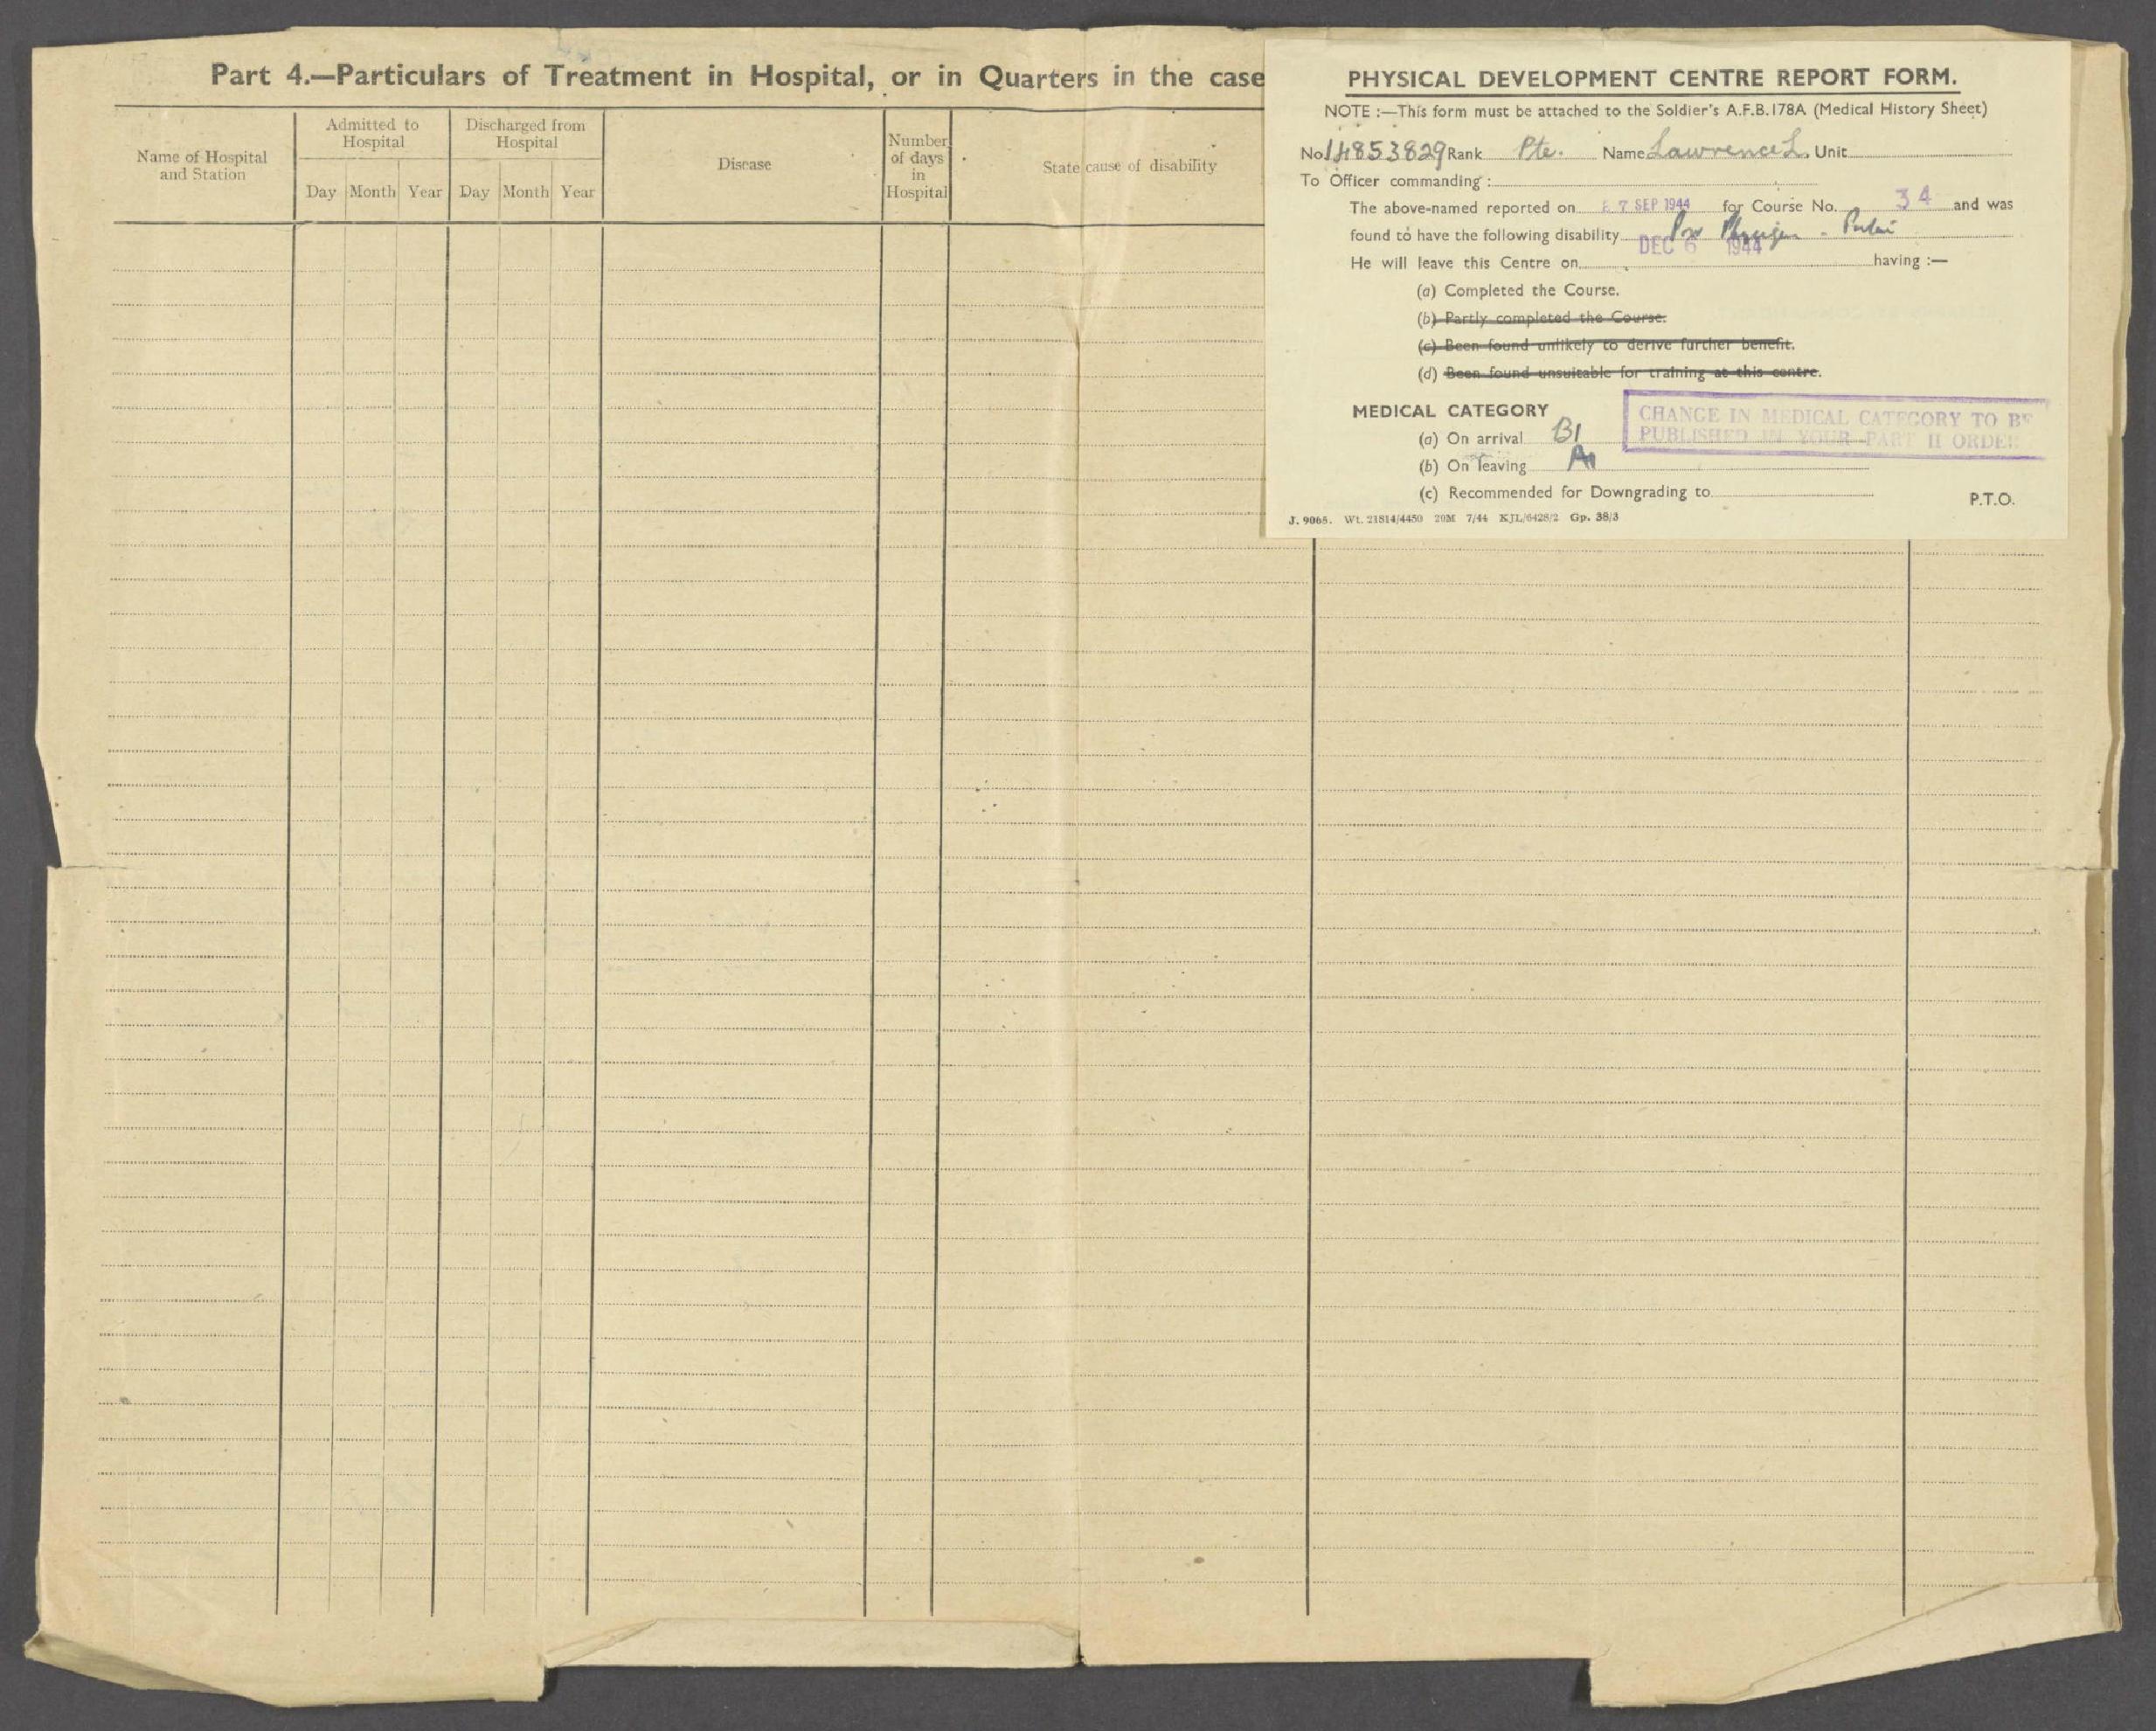 Part 4.—Particulars of Treatment in Hospital, or in Quarters in the case
Name of Hospital
and Station
Admitted to
Hospital
Day Month Year
Discharged from
Hospital
Day Month Year
Disease
Number
of days
in
Hospital
State cause of disability
PHYSICAL DEVELOPMENT CENTRE REPORT FORM.
NOTE :—This form must be attached to the Soldier's A.F.B.178A (Medical History Sheet)
No. 14853829 Rank Pte. Name Lawrence L. Unit
To Officer commanding :
The above-named reported on 7 SEP 1944 for Course No. 34 and was
found to have the following disability Poor Physique
DEC 6 1944
He will leave this Centre on having :—
(a) Completed the Course.
(b) Partly completed the Course.
(c) Been found unlikely to derive further benefit.
(d) Been found unsuitable for training at this centre.
MEDICAL CATEGORY
CHANGE IN MEDICAL CATEGORY TO BE
PUBLISHED IN YOUR PART II ORDER
(a) On arrival B1
(b) On leaving A1
(c) Recommended for Downgrading to
P.T.O.
J. 9065. Wt. 21814/4450 20M 7/44 KJL/6428/2 Gp. 38/3